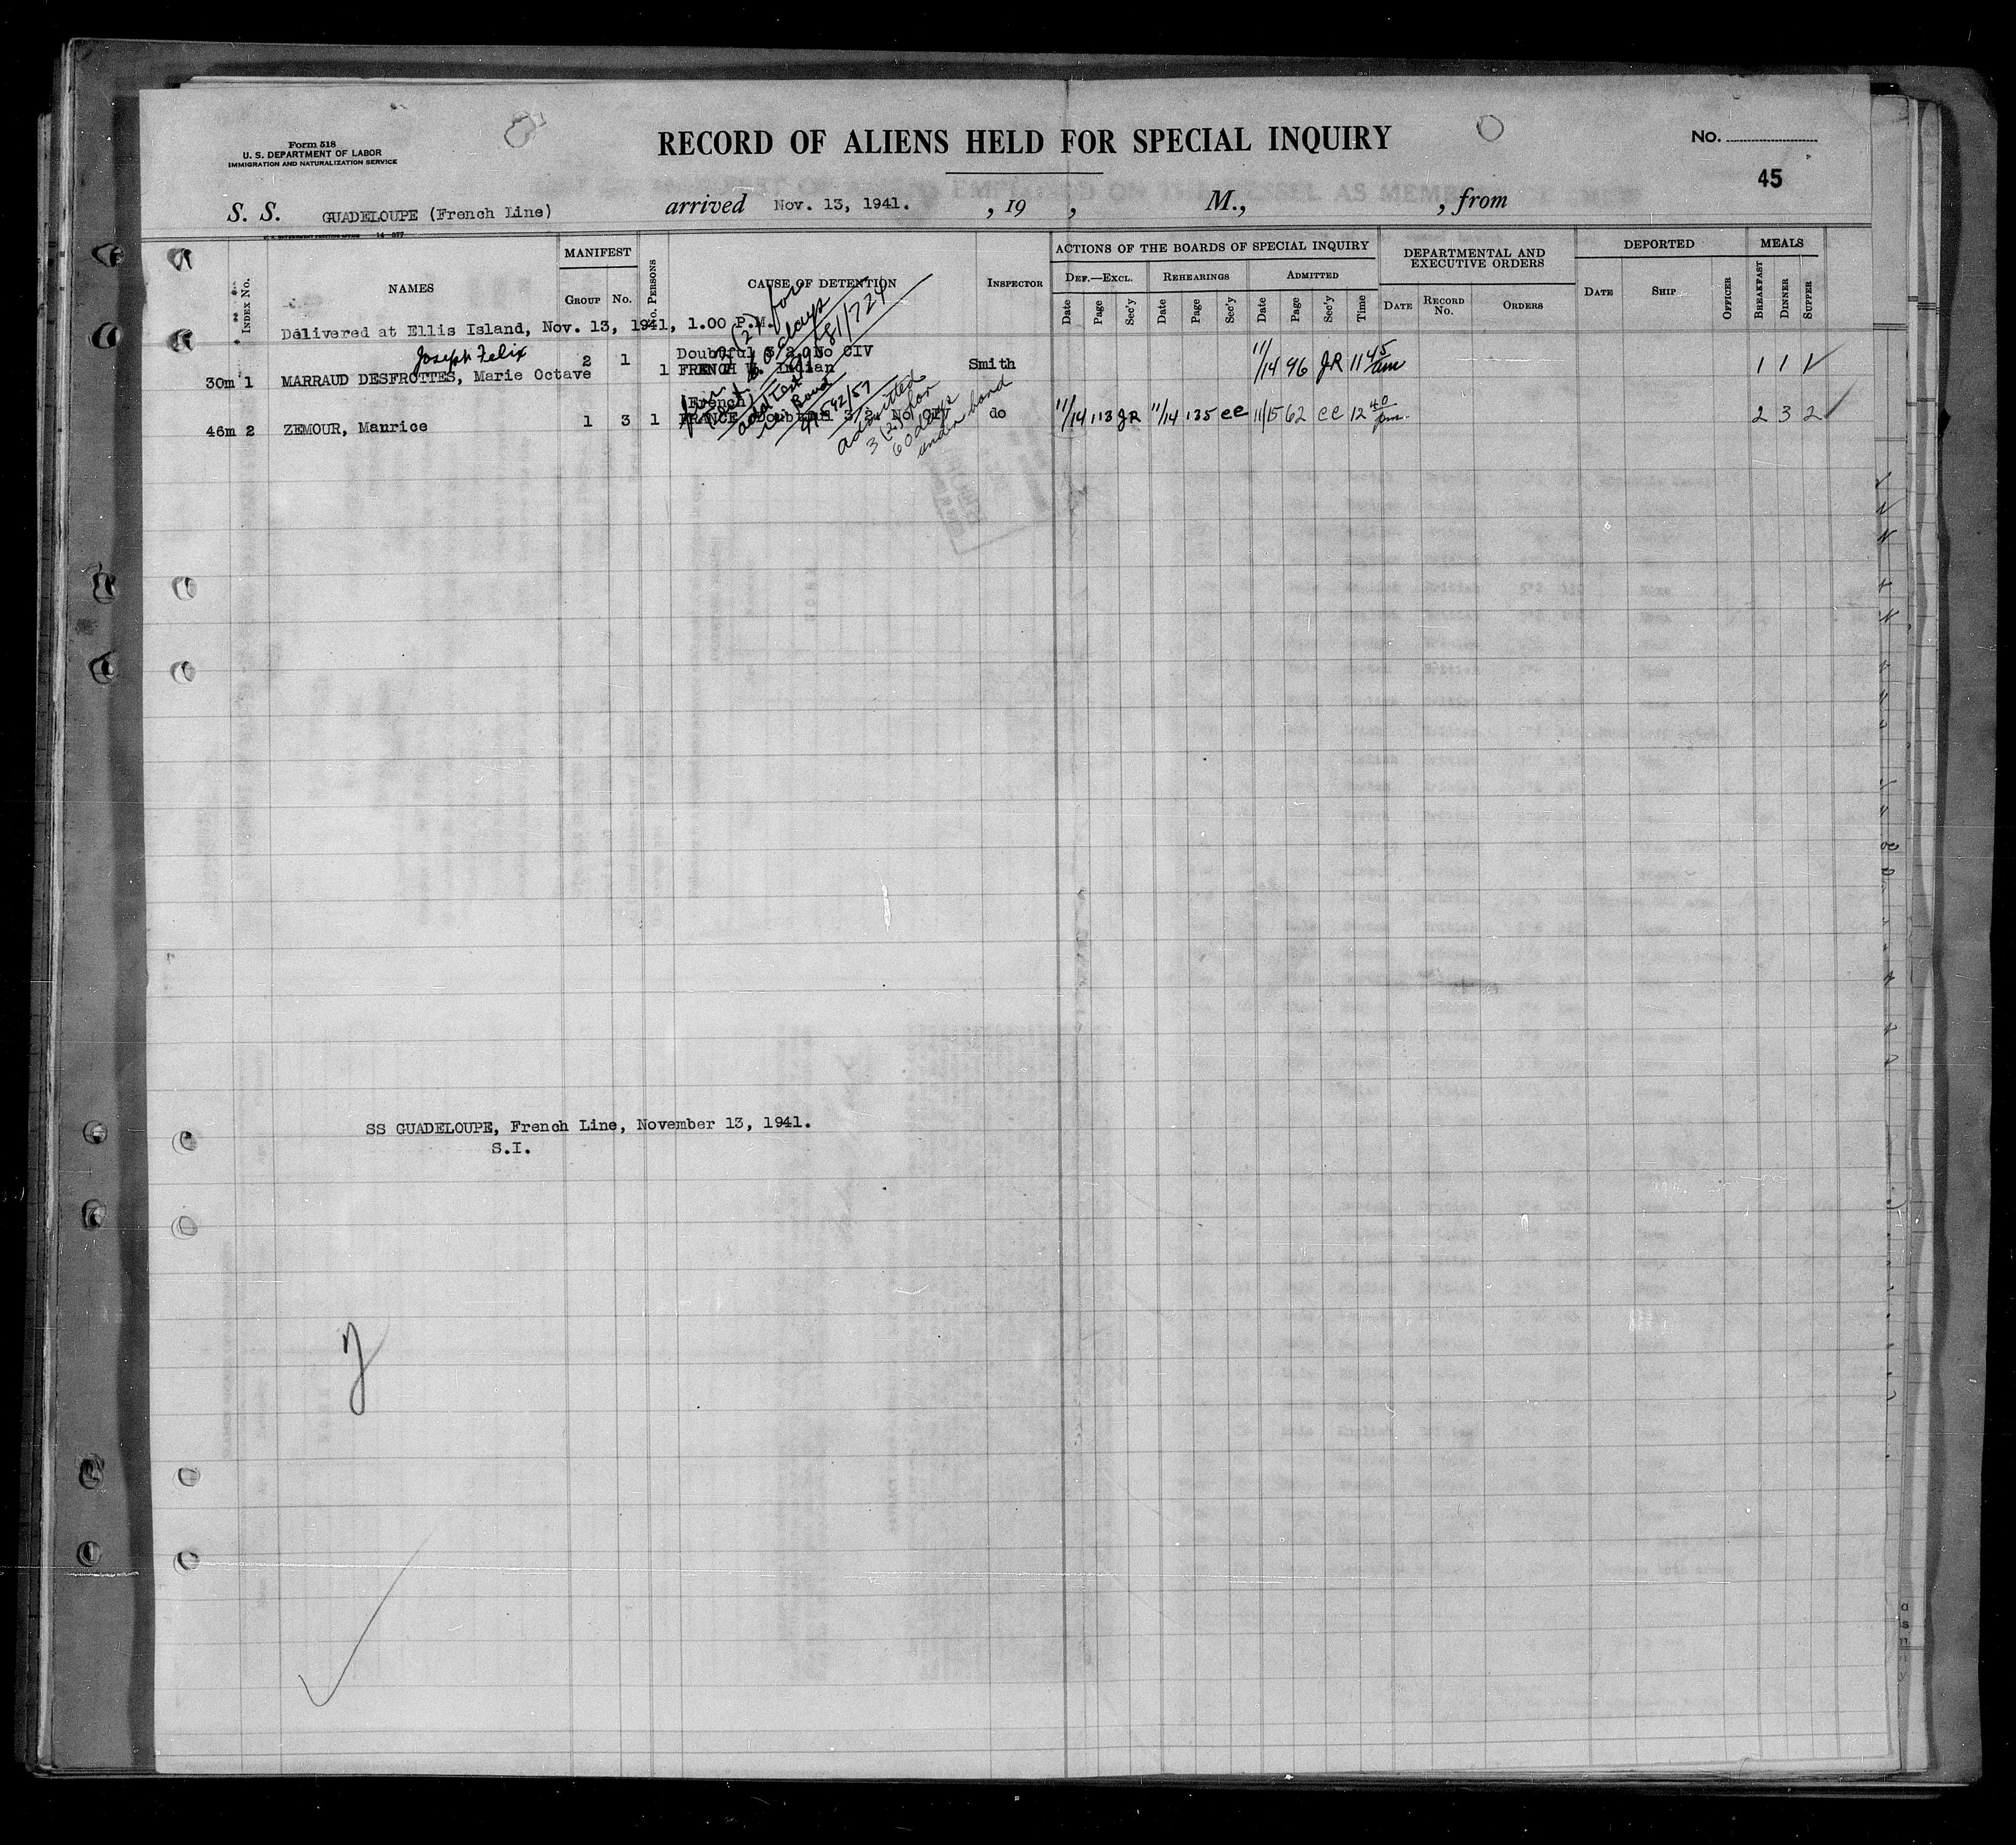 Form 518
U. S. DEPARTMENT OF LABOR
IMMIGRATION AND NATURALIZATION SERVICE
RECORD OF ALIENS HELD FOR SPECIAL INQUIRY
No.
45
S. S. GUADELOUPE (French Line) arrived Nov. 13, 1941. , 19 , M., , from
MANIFEST ACTIONS OF THE BOARDS OF SPECIAL INQUIRY DEPARTMENTAL AND EXECUTIVE ORDERS DEPORTED MEALS
INDEX No. NAMES GROUP No. No. PERSONS CAUSE OF DETENTION INSPECTOR DEF.—EXCL. REHEARINGS ADMITTED
Date Page Sec'y Date Page Sec'y Date Page Sec'y Time DATE RECORD No. ORDERS DATE SHIP OFFICER BREAKFAST DINNER SUPPER
Delivered at Ellis Island, Nov. 13, 1941, 1.00 P.M.
Joseph Felix
Doubtful 3 2, No CIV
30m 1 MARRAUD DESFROTTES, Marie Octave 2 1 1 FRENCH W. Indian Smith 11/14 96 JR 11 45 am 1 1 1
(French)
46m 2 ZEMOUR, Maurice 1 3 1 FRANCE Doubtful 3 2, No CIV do 11/14 113 JR 11/14 135 CC 11/15 62 CC 12 40 pm. 2 3 2
(2) for
60 days
admitted
3 (2) for
60 days
under bond
SS GUADELOUPE, French Line, November 13, 1941.
S.I.